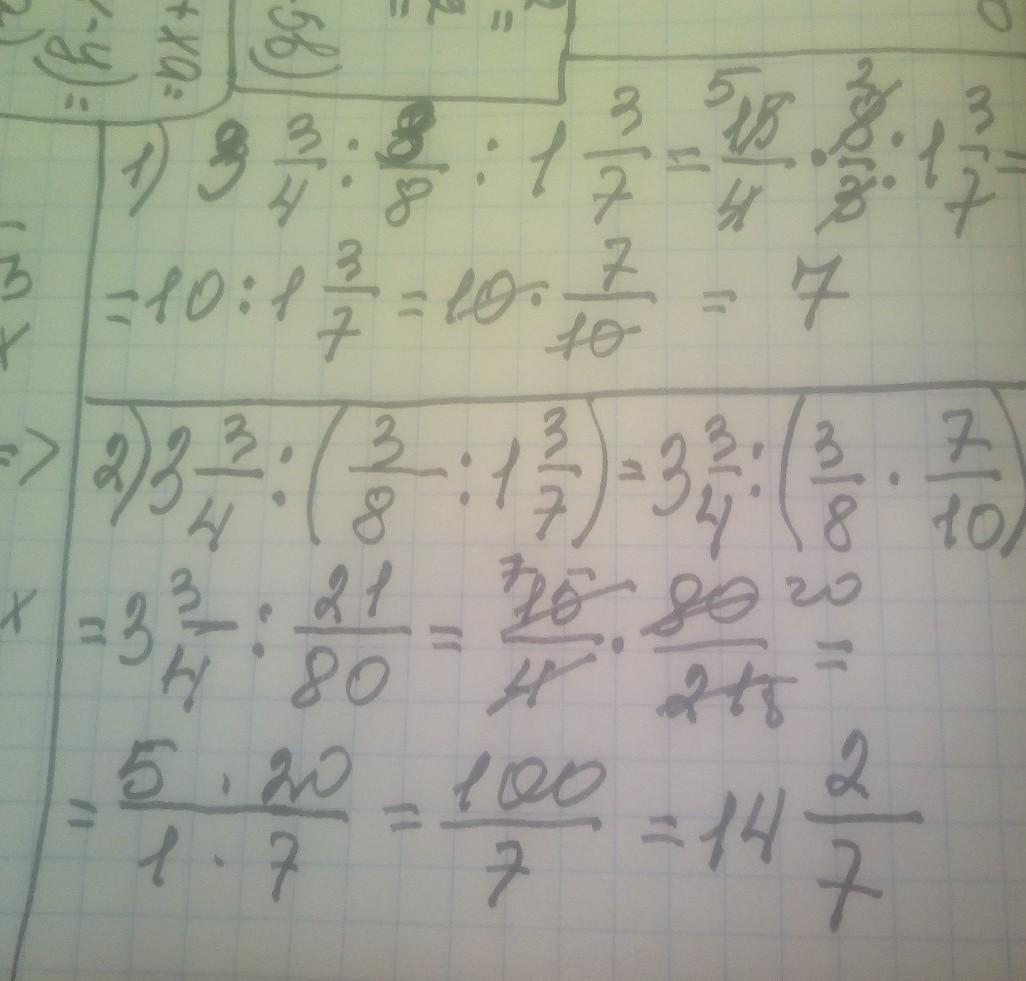 1) 3 3/4 : 3/8 : 1 3/7 = 15/4 · 8/3 : 1 3/7 =
= 10 : 1 3/7 = 10 · 7/10 = 7
2) 3 3/4 : (3/8 : 1 3/7) = 3 3/4 : (3/8 · 7/10)
= 3 3/4 : 21/80 = 15/4 · 80/21 =
= 5 · 20 / 1 · 7 = 100/7 = 14 2/7